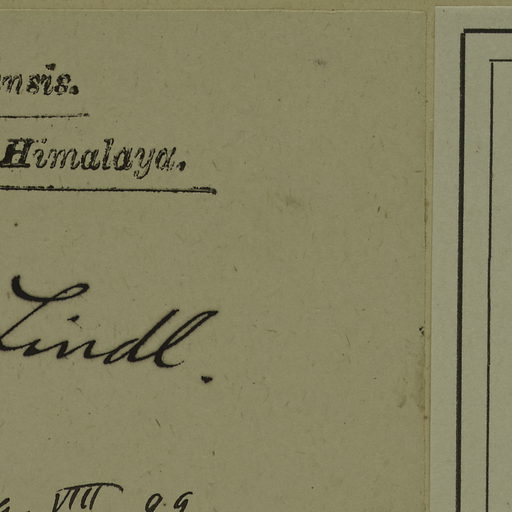 ensis.
Himalaya.
Lindl.
VIII 99